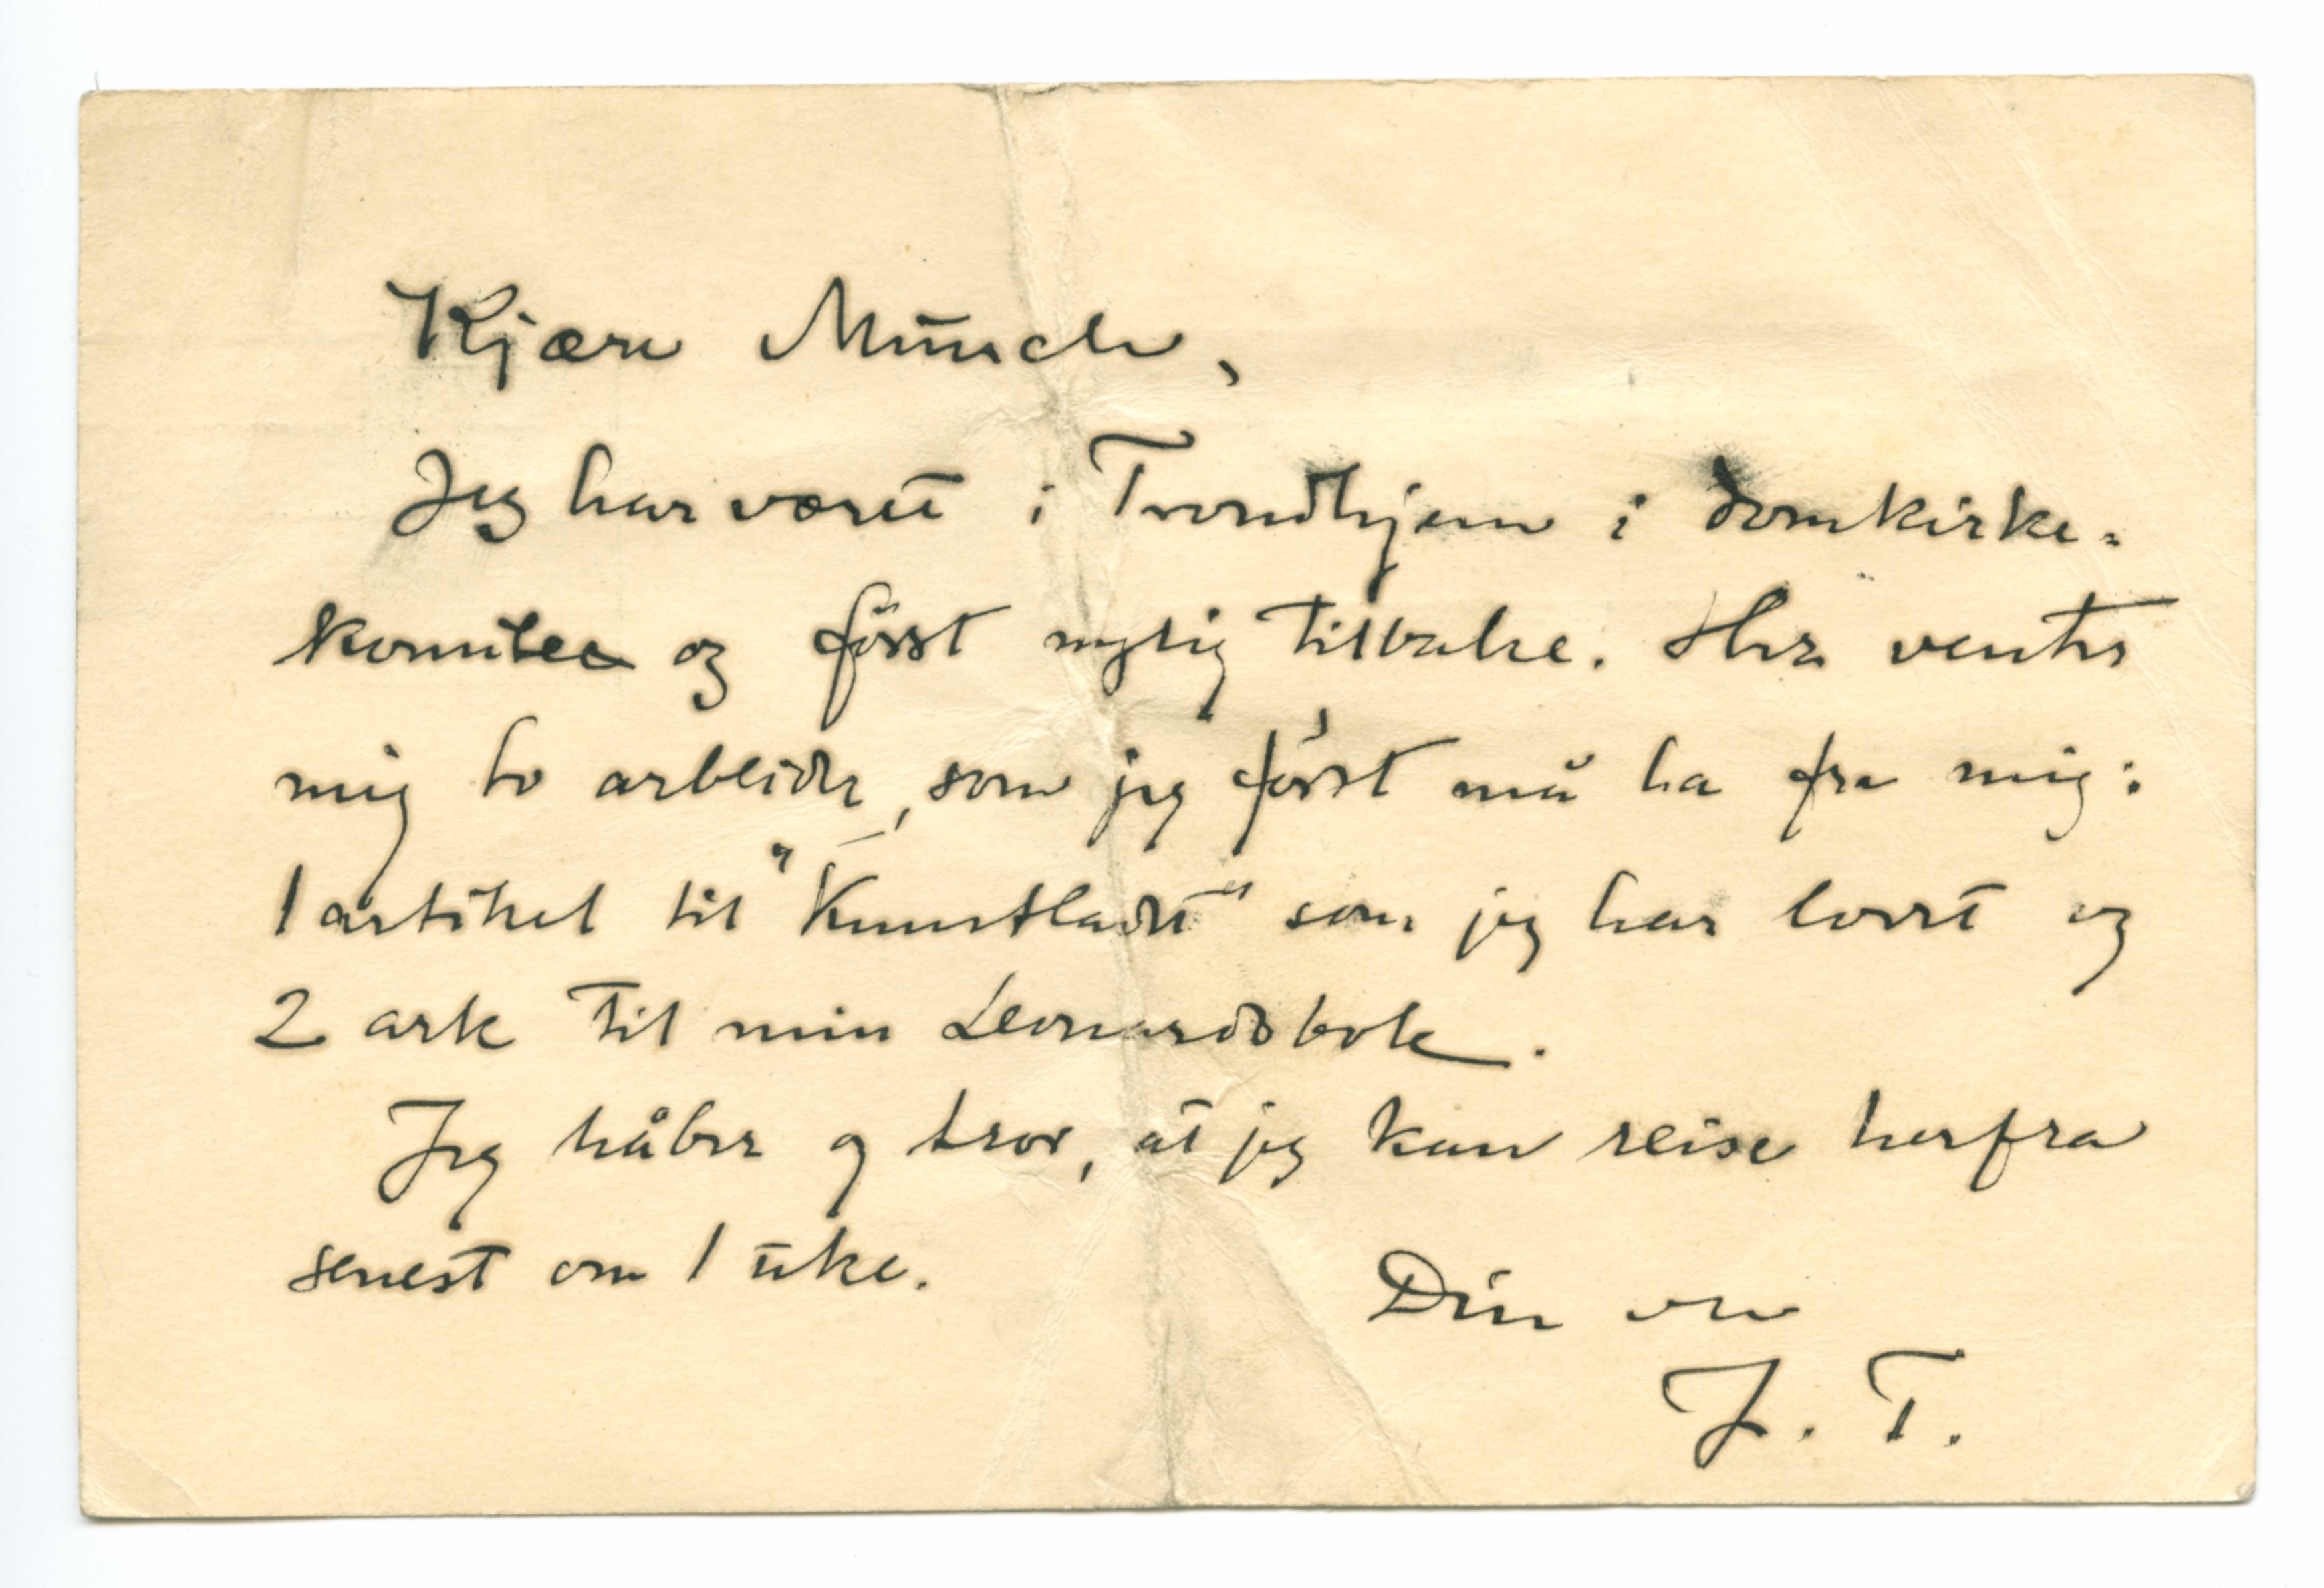 Kjære Munch,
Jeg har været i Trondhjem i domkirke-
komiteen og först nylig tilbake. Her venter
mig to arbeider, som jeg först må ha fra mig:
1 artikel til "Kunstbladet" som jeg har lovet og
2 ark til min Leonardobok.
Jeg håber og tror, at jeg kan reise herfra
senest om 1 uke.
Din ven
J. T.